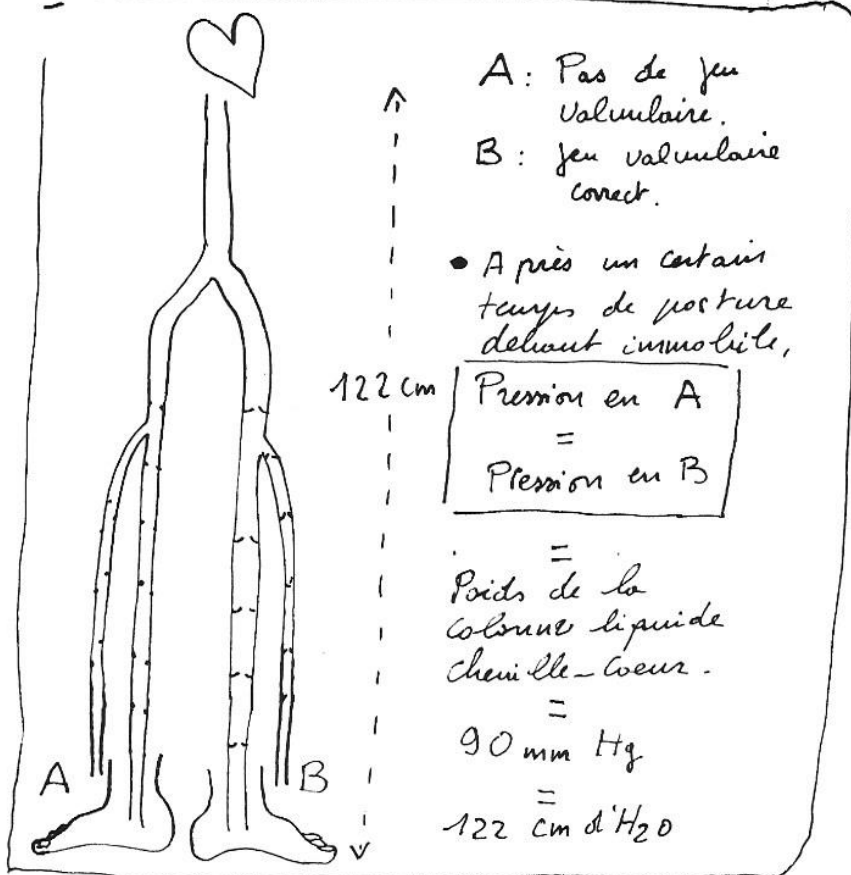 A : Pas de jeu
valvulaire.
B : jeu valvulaire
correct.
• Après un certain
temps de posture
debout immobile,
122 cm
Pression en A
=
Pression en B
=
Poids de la
colonne liquide
cheville-coeur.
=
90 mm Hg
=
122 cm d'H2O
A
B